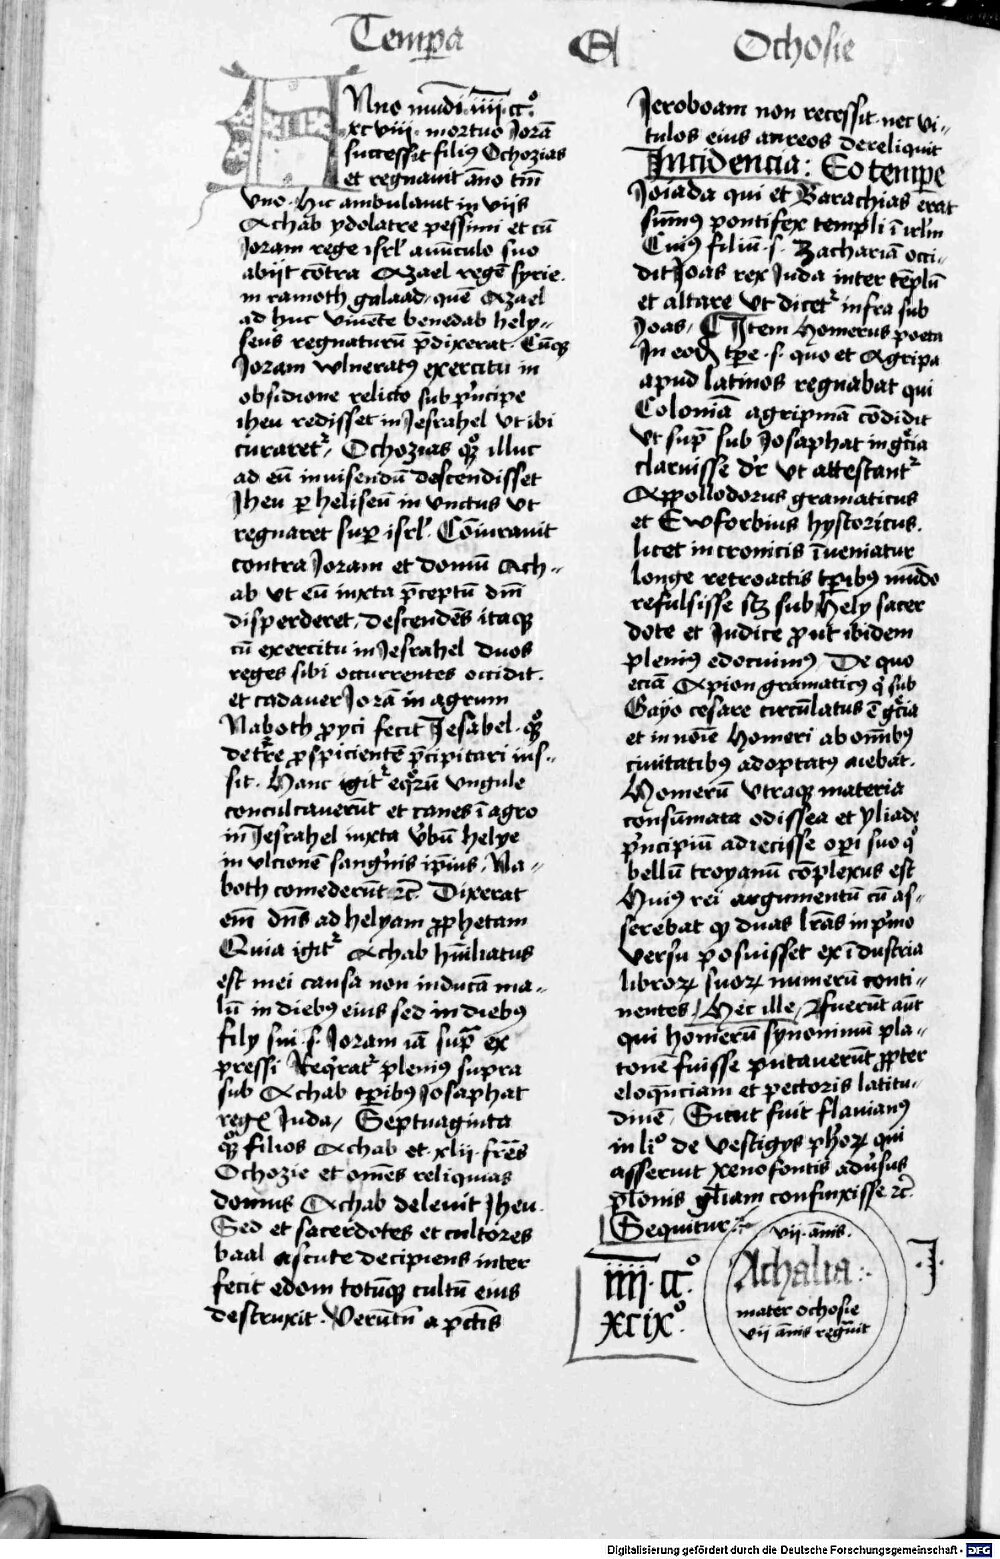 Tempa Et Ochosie
ANno mundi iiii cc°
xcviii mortuo Jorā
successit filiꝰ Ochozias
et regnauit āno tm̄
vno. Hic ambulauit in viis
Achab ydolatre pessimi et cū
Joram rege isrl' auūculo suo
abijt cōtra Azael regē syrie.
in ramoth galaad, quē Azael
ad huc viuēte benedab hely-
seus regnaturū p̄dixerat. Cūqꝫ
Joram wlneratꝰ exercitu in
obsidione relicto sub pͥncipe
iheu redisset in Jesrahel vt ibi
curaretᷣ, Ochozias qͦꝫ illuc
ad eū inuisendū descendisset
Jheu ꝑ heliseū in vnctus vt
regnaret suꝑ isrl'. Cōiurauit
contra Joram et domū Ach-
ab vt eū iuxta p̄ceptū dn̄i
disperderet, descendēs itaqꝫ
cū exercitu in Jesrahel duos
reges sibi occurrentes occidit.
et cadauer Jorā in agrum
Naboth ꝓyci fecit Jesabel qͦꝫ
de tr̄re ꝓspicientē p̄cipitari ius-
sit. Hanc igitᷣ eqͦrū vngule
conculcauerūt et canes ī agro
in Jesrahel iuxta v̓bū helye
in vlcionē sangͥnis ip̄ius Na-
both comederūt ꝛc̄ Dixerat
em̄ dn̄s ad helyam ꝓphetam
Quia igitᷣ Achab hūiliatus
est mei causa non inducā ma-
lū in diebus eius sed in diebꝰ
fily sui .s. Joram iā supᷓ ex
pressi Reqͥratᷣ plenius supra
sub Achab tꝑibꝰ Josaphat
regꝭ Juda, Septuaginta
qͦꝫ filios Achab et xlii fr̄es
Ochozie et om̄es reliquias
domus Achab deleuit Jheu.
Sed et sacerdotes et cultores
baal astute decipiens inter
fecit edom totūqꝫ cultū eius
destruxit. Verūtn̄ a pctīs
Jeroboam non recessit. nec vi-
tulos eius aureos dereliquit
Incidencia: Eo tempe
Joiada qui et Barachias erat
sūmꝰ pontifex templi ī irl'm
Cuiꝰ filiū .s. Zachariā occi-
dit Joas rex Juda inter tēplū
et altare vt dicetᷣ infra sub
Joas, Item Homerus poeta
In eod̄ tꝑe .s. quo et Agripa
apud latinos regnabat qui
Coloniā agripinā cōdidit
vt supᷓ sub Josaphat in gͨcia
claruisse dr̄ vt attestantᷣ
Appollodorus gramaticus
et Ewforbius hystoricus.
licet in cronicis īueniatur
longe retroactis tꝑibꝰ mūdo
refulsisse sꝫ sub Hely sacer
dote et Judice ꝓut ibidem
pleniꝰ edocuimꝰ, De quo
eciā Apion gramaticꝰ qͥ sub
Gayo cesare circūlatus ē gͨcia
et in noīe Homeri ab om̄ibꝰ
ciuitatibꝰ adoptatꝰ aiebat.
Homerū vtraqꝫ materia
consūmata odissea et yliade
pͥncipiū adiecisse oꝑi suo qͦ
bellū troyanū cōplexus est
Huius rei argumentū cū as-
serebat qꝫ duas lr̄as in pͥmo
versu posuisset ex īdustria
libroꝝ suoꝝ numerū conti-
nentes, Hec ille, Fuerūt aūt
qui homerū synonimū pla-
tonē fuisse putauerūt ꝓpter
eloquēciam et pectoris latitu-
dinē, Sicut fuit flauianꝰ
in liͦ de vestigys ph'oꝝ qui
asserunt xenofontis adūsus
pl̄onis gl'iam confinxisse ꝛc̄.
Sequitur
iiii cc°
xcix°.
vii annis.
Athalia
mater ochosie
vii annis regnauit
Digitalisierung gefördert durch die Deutsche Forschungsgemeinschaft - DFG